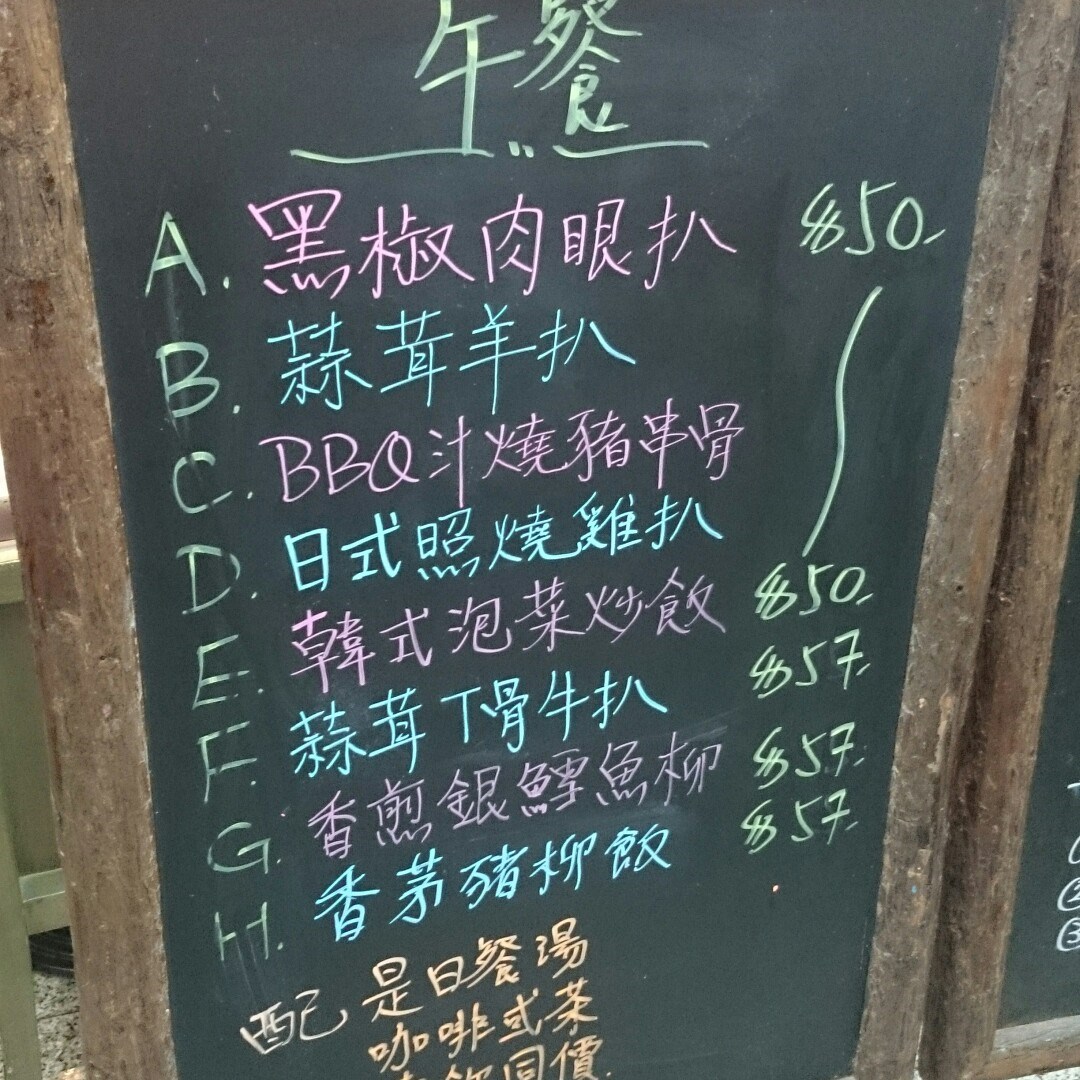 午餐
A. 黑椒肉眼扒 $50.
B. 蒜茸羊扒
C. BBQ汁燒豬串骨
D. 日式照燒雞扒
E. 韓式泡菜炒飯 $50.
F. 蒜茸T骨牛扒 $57.
G. 香煎銀鱈魚柳 $57.
H. 香茅豬柳飯 $57.
配 是日餐湯
咖啡或茶
飲同價.